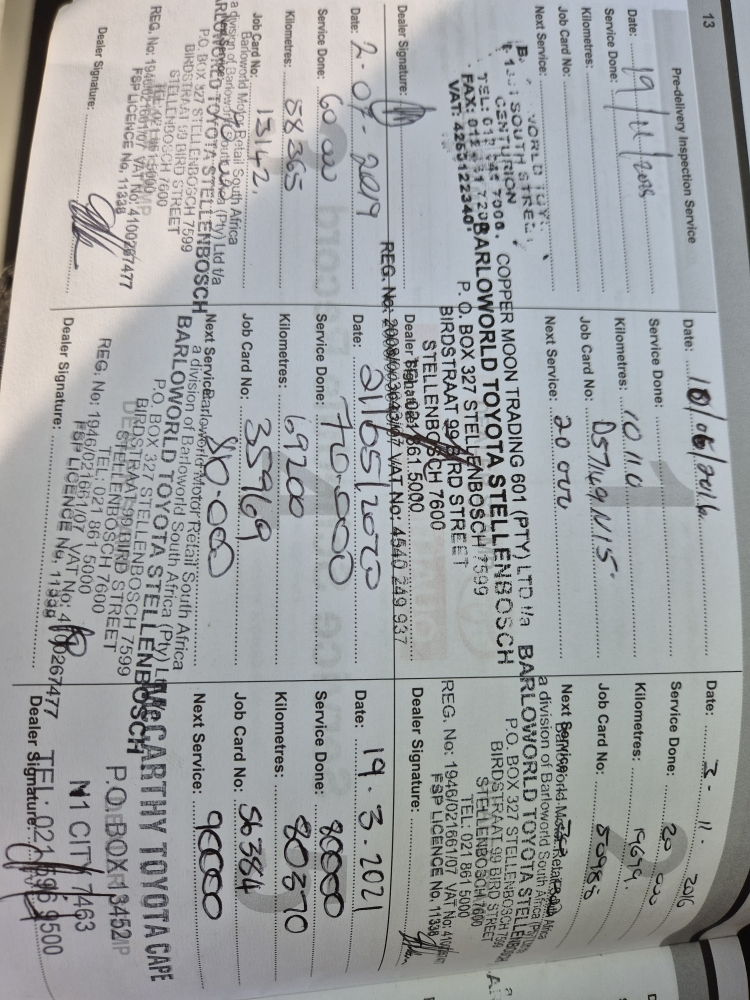 13
Pre-delivery Inspection Service
Date: 19/11/2015
Service Done:
Kilometres:
Job Card No:
Next Service:
SOUTH STREET
CENTURION
Dealer Signature:
Date: 18/06/2016
Service Done:
Kilometres: 10110
Job Card No: D57149N15
Next Service: 20 000
COPPER MOON TRADING 601 (PTY) LTD t/a
BARLOWORLD TOYOTA STELLENBOSCH
P. O. BOX 327 STELLENBOSCH 7599
BIRDSTRAAT 99 BIRD STREET
STELLENBOSCH 7600
TEL: 021 861 5000
REG. No: 2008/003643/07 VAT No: 4540 249 937
Dealer Signature:
Date: 3-11-2016
Service Done: 20 000
Kilometres: 19659
Job Card No: 50988
Next Service:
Barloworld Motor Retail South Africa
a division of Barloworld South Africa
BARLOWORLD TOYOTA STELLENBOSCH
P.O. BOX 327 STELLENBOSCH 7599
BIRDSTRAAT 99 BIRD STREET
STELLENBOSCH 7600
TEL: 021 861 5000
REG. No: 1946/021661/07 VAT No:
FSP LICENCE No. 11338
Dealer Signature:
Date: 2-07-2019
Service Done: 60 000
Kilometres: 58365
Job Card No: 13142
Barloworld Motor Retail South Africa
a division of Barloworld South Africa (Pty) Ltd t/a
BARLOWORLD TOYOTA STELLENBOSCH
P.O. BOX 327 STELLENBOSCH 7599
BIRDSTRAAT 99 BIRD STREET
STELLENBOSCH 7600
TEL: 021 861 5000
REG. No: 1946/021661/07 VAT No: 4100267477
FSP LICENCE No. 11338
Dealer Signature:
Date: 21/05/2020
Service Done: 70-000
Kilometres: 69200
Job Card No: 35969
Next Service: 80-000
Barloworld Motor Retail South Africa
a division of Barloworld South Africa (Pty) Ltd
BARLOWORLD TOYOTA STELLENBOSCH
P.O. BOX 327 STELLENBOSCH 7599
BIRDSTRAAT 99 BIRD STREET
STELLENBOSCH 7600
TEL: 021 861 5000
REG. No: 1946/021661/07 VAT No: 4100267477
FSP LICENCE No. 11338
Dealer Signature:
Date: 19.3.2021
Service Done: 80000
Kilometres: 80370
Job Card No: 56384
Next Service: 90000
McCARTHY TOYOTA CAPE
P.O. BOX 13452
N1 CITY 7463
TEL: 021 596 9500
Dealer Signature: